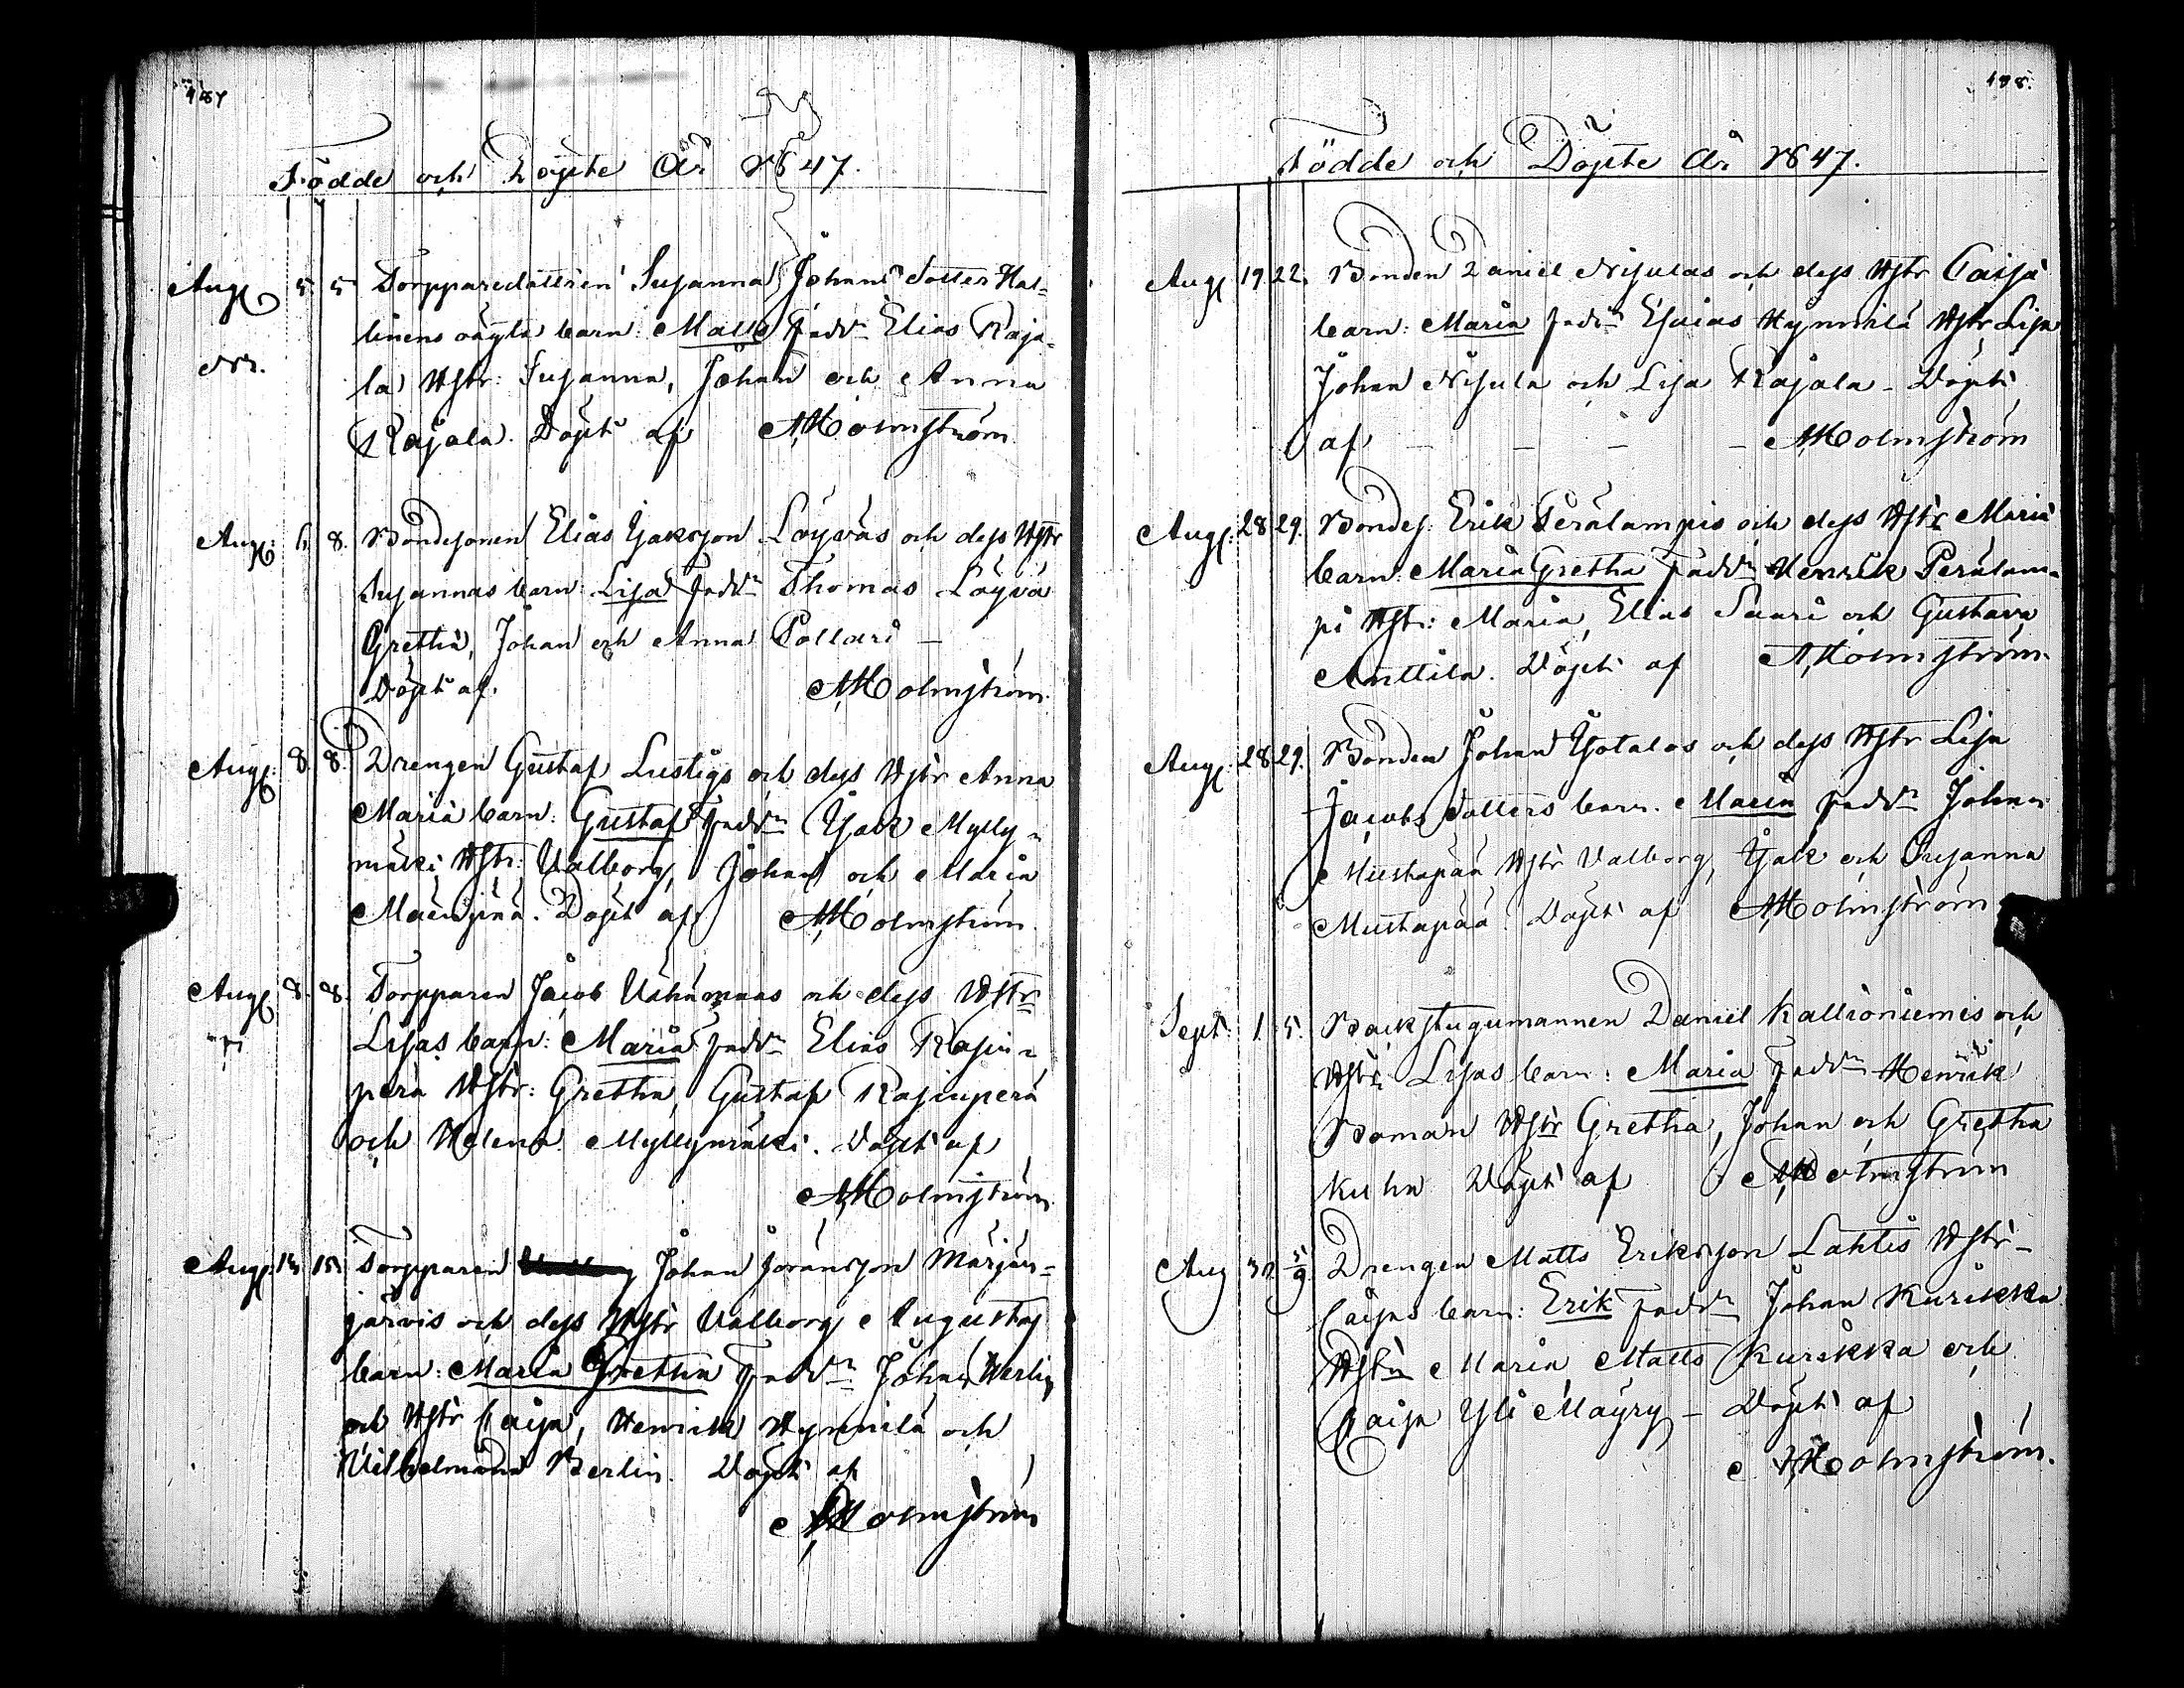 187
Födde och Döpte År 1847.
Aug 5 5 Torpparedottren Susanna Johans dotter Hal-
linens oägta barn: Matts Faddr Elias Raja-
la Hstr: Susanna, Johan och Anna
Rajala. Döpt af AHolmström
Aug: 6 8. Bondesonen Elias Isaksson Löyväs och dess Hstr
Susannas barn: Lisa Faddr Thomas Löyvä
Gretha, Johan och Anna Pollari –
Döpt af. AHolmström.
Aug: 8. 8. Drengen Gustaf Lustigs och dess Hstr Anna
Maria barn: Gustaf Faddr Isak Mylly-
mäki Hstr: Valborg, Johan och Maria
Mäenpää. Döpt af AHolmström.
Aug 8. 8. Torpparen Jacob Vähämaas och dess Hstr
Lisas barn: Maria Faddr Elias Rajin-
perä Hstr: Gretha, Gustaf Rajinperä
och Helena Myllymäki. Döpt af
AHolmström.
Aug: 14 15. Torpparen Johan Jöransson Marjan-
järvis och dess Hstr Valborg Augustas
barn: Maria Gretha Faddr Johan Berlin
och Hstr Caisa, Henrik Hynnilä och
Vilhelmina Berlin. Döpt af
AHolmström
188.
Födde och Döpte År 1847.
Aug 19 22. Bonden Daniel Nisulas och dess Hstr Caisa
barn: Maria Faddr Esaias Hynnilä Hstr Lisa
Johan Nisula och Lisa Rajala – Döpt
af – – – – AHolmström
Aug: 28 29. Bondes. Erik Perälampis och dess Hstr Maria
barn: Maria Gretha Faddr Henrik Perälam-
pi Hstr: Maria, Elias Saari och Gustava
Anttila. Döpt af AHolmström.
Aug: 28 29. Bonden Johan Ylotalos och dess Hstr Lisa
Jacobs dotters barn. Maria Faddr Johan
Mustapää Hstr Valborg, Isak och Susanna
Mustapää. Döpt af AHolmström
Sept: 1. 5. Backstugumannen Daniel Kallioniemis och
Hstr Lisas barn: Maria Faddr Henrik
Boman Hstr Gretha, Johan och Gretha
Kuhn Döpt af AHolmström
Aug 31 5/9. Drengen Matts Eriksson Lahtis Hstr –
Caisas barn: Erik Faddr Johan Kurikka
Hstr Maria, Matts Kurikka och
Caisa Yli Mäyry – Döpt af
AHolmström.